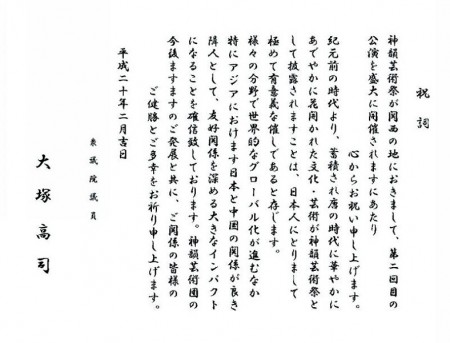 祝詞
神韻芸術祭が関西の地におきまして、第二回目の
公演を盛大に開催されますにあたり
心からお祝い申し上げます。
紀元前の時代より、蓄積され唐の時代に華やかに
あでやかに花開かれた文化・芸術が神韻芸術祭と
して披露されますことは、日本人にとりまして
極めて有意義な催しであると存じます。
様々の分野で世界的なグローバル化が進むなか
特にアジアにおけます日本と中国の関係が良き
隣人として、友好関係を深める大きなインパクト
になることを確信致しております。神韻芸術団の
今後ますますのご発展と共に、ご関係の皆様の
ご健勝とご多幸をお祈り申し上げます。
平成二十年二月吉日
衆議院議員
大塚高司